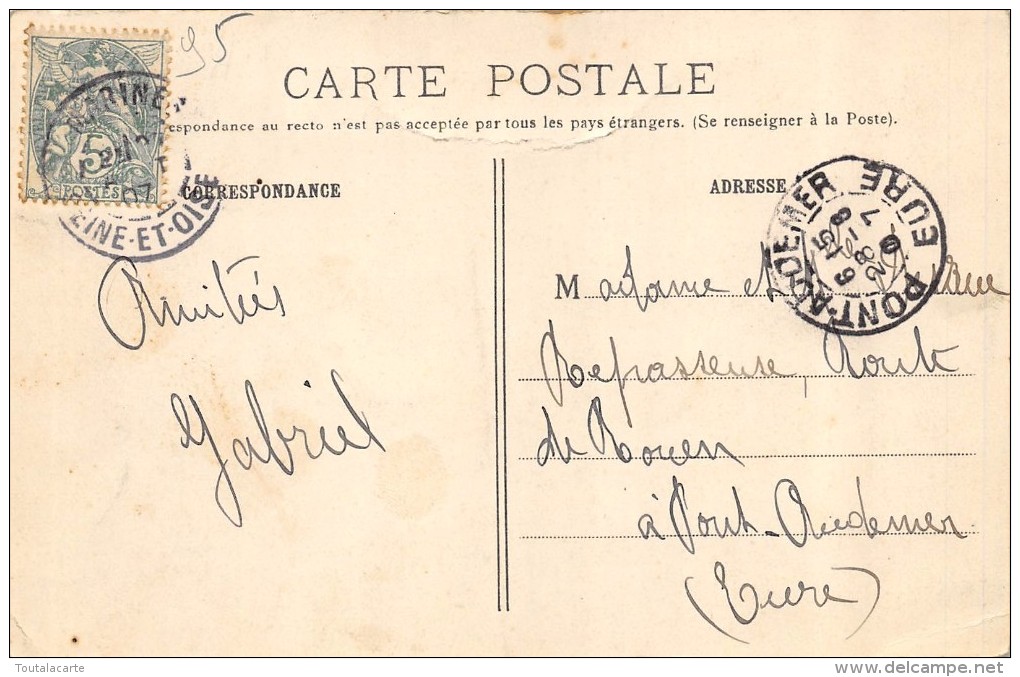 95
CARTE POSTALE
respondance au recto n'est pas acceptée par tous les pays étrangers. (Se renseigner à la Poste).
5c
POSTES
SEINE-ET-OISE
CORRESPONDANCE
ADRESSE
PONT-AUDEMER
EURE
6 15
28
Amitiés
Gabriel
Madame et
Repasseuse, Route
de Rouen
à Pont-Audemer
(Eure)
Toutalacarte
www.delcampe.net